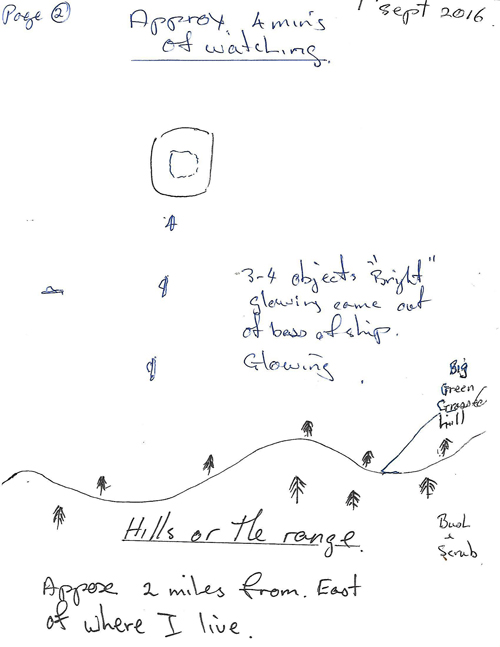 Page ②
1 Sept 2016.
Approx. 4 mins
of watching.
3-4 objects "Bright"
glowing came out
of base of ship.
Glowing
Big
Green
Granite
hill
Hills or the range.
Bush
+
Scrub
Approx 2 miles from. East
of where I live.